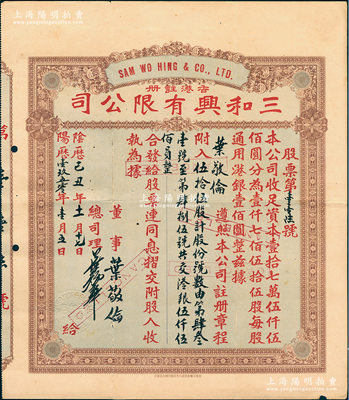 上海陽明拍賣
SAM WO HING & CO., LTD.
香港註冊
三和興有限公司
股票第
號
本公司收足資本壹拾七萬伍仟伍
佰圓分為壹仟七佰伍拾伍股每股
通用港銀壹佰圓整兹據
葉敬倫 遵照本公司註冊章程
附入伍拾伍股計股份號數由第肆叁
壹號至第肆捌伍號共交港銀伍仟伍
佰員整
合發給股票連同息摺交附股人收
執為據
董事 葉敬倫
總司理
陰曆己丑年十一月
陽曆壹玖五零年壹月五日
給
上海陽明拍賣